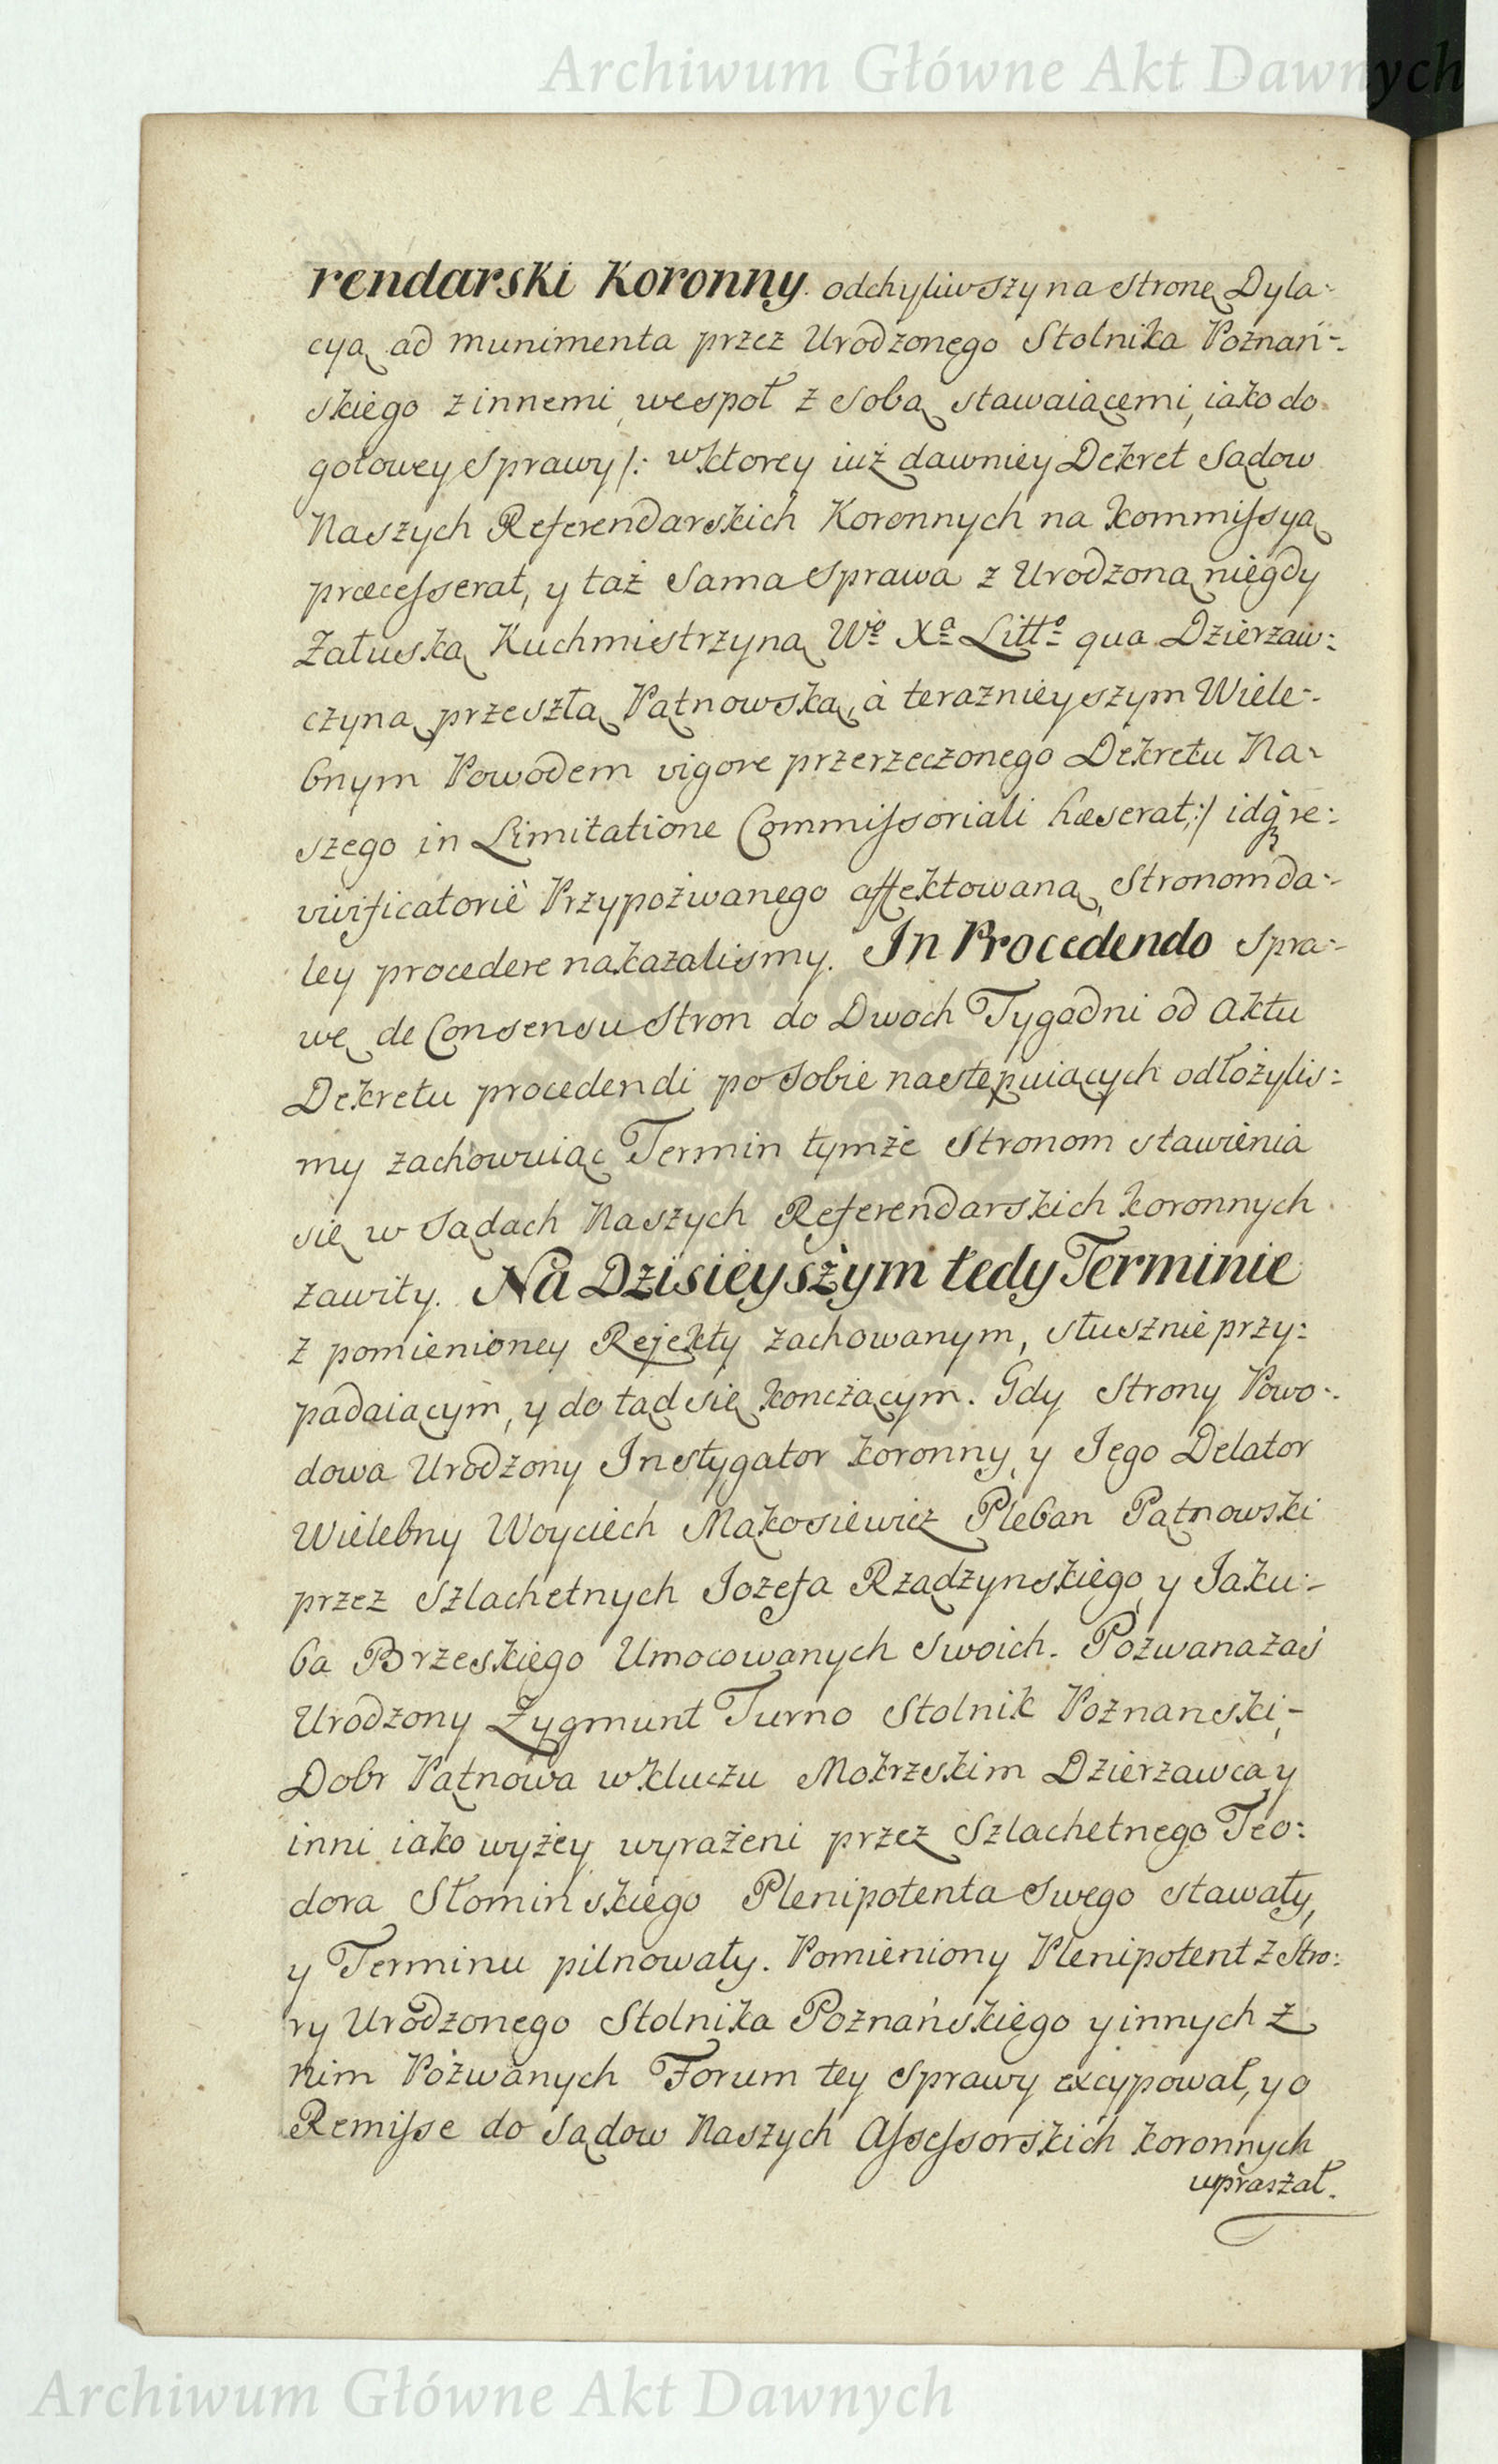 Archiwum Główne Akt Dawnych
rendarski Koronny. odchyliwszy na stronę Dyla-
cyą ad munimenta przez Urodzonego Stolnika Poznań-
skiego z innemi wespoł z sobą stawaiącemi, iako do
gotowey sprawy /: w ktorey iuż dawniey Dekret Sądow
Naszych Referendarskich Koronnych na Kommissyą
præcesserat, y taż sama sprawa z Urodzoną niegdy
Załuską Kuchmistrzyną Wo Xa Litto qua Dzierzaw:
czyną przeszłą Pątnowską, à teraznieyszym Wiele-
bnym Powodem vigore przerzeczonego Dekretu Na-
szego in Limitatione Commissoriali hæserat,:/ idq re:
vivificatoriè Przypozwanego affektowaną, Stronom da-
ley procedere nakazalismy. In Procedendo Spra-
wę de Consensu Stron do Dwoch Tygodni od Aktu
Dekretu procedendi po sobie następuiących odłożylis:
my zachowuiąc Termin tymże Stronom stawienia
się w Sądach Naszych Referendarskich Koronnych
zawity. Na Dzisieyszym tedy Terminie
z pomienioney Rejekty zachowanym, słusznie przy:
padaiącym, y do tąd się kończącym. Gdy Strony Powo-
dowa Urodzony Instygator Koronny, y Jego Delator
Wielebny Woyciech Makosiewicz Pleban Pątnowski
przez Szlachetnych Jozefa Rządzynskiego, y Jaku-
ba Brzeskiego Umocowanych swoich. Pozwana zaś
Urodzony Zygmunt Turno Stolnik Poznanski,-
Dobr Pątnowa w Kluczu Mokrzskim Dzierzawca, y
inni iako wyżey wyrażeni przez Szlachetnego Teo:
dora Słominskiego Plenipotenta swego stawały,
y Terminu pilnowały. Pomieniony Plenipotent z Stro:
ny Urodzonego Stolnika Poznańskiego y innych z
nim Pozwanych Forum tey sprawy excypował, y o
Remisse do Sądow Naszych Assessorskich Koronnych
upraszał.
Archiwum Główne Akt Dawnych